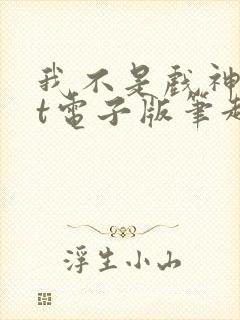 我不是戲神
t電子版筆趣
浮生小山